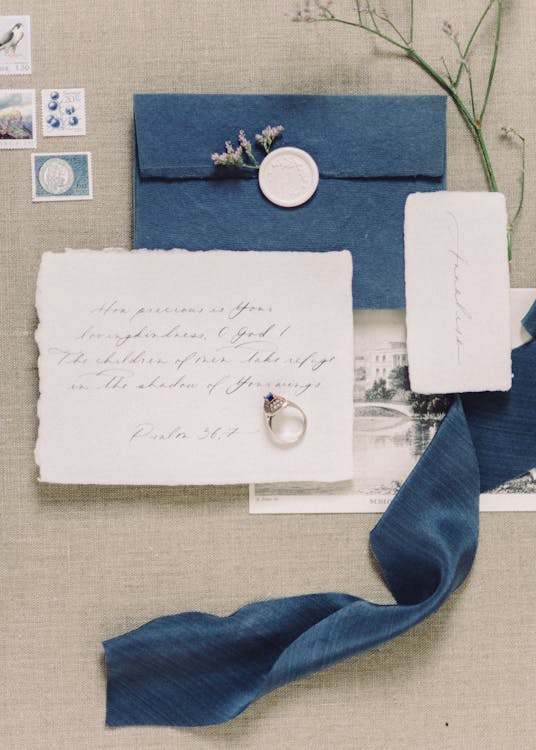 How precious is Your
lovingkindness, O God!
The children of men take refuge
in the shadow of Your wings
Psalm 36:7
Annaliese